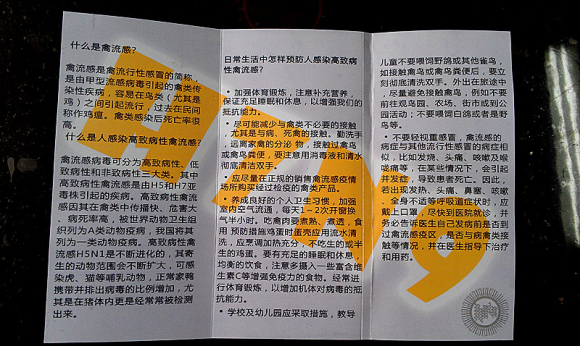 什么是禽流感?
禽流感是禽流行性感冒的简称,
是由甲型流感病毒引起的禽类传
染性疾病,容易在鸟类(尤其是
鸡)之间引起流行,过去在民间
称作鸡瘟。禽类感染后死亡率很
高。
什么是人感染高致病性禽流感?
禽流感病毒可分为高致病性、低
致病性和非致病性三大类。其中
高致病性禽流感是由H5和H7亚
毒株引起的疾病。高致病性禽流
感因其在禽类中传播快、危害大
、病死率高,被世界动物卫生组
织列为A类动物疫病,我国将其
列为一类动物疫病。高致病性禽
流感H5N1是不断进化的,其寄
生的动物范围会不断扩大,可感
染虎、猫等哺乳动物,正常家鸭
携带并排出病毒的比例增加,尤
其是在猪体内更是经常被检测
出来。
日常生活中怎样预防人感染高致病
性禽流感?
• 加强体育锻炼,注意补充营养,
保证充足睡眠和休息,以增强我们的
抵抗能力。
• 尽可能减少与禽类不必要的接触
,尤其是与病、死禽的接触。勤洗手
,远离家禽的分泌 物,接触过禽鸟
或禽鸟粪便,要注意用消毒液和清水
彻底清洁双手。
• 应尽量在正规的销售禽流感疫情
场所购买经过检疫的禽类产品。
• 养成良好的个人卫生习惯,加强
室内空气流通,每天1~2次开窗换
气半小时。吃禽肉要煮熟、煮透,食
用 预防措施鸡蛋时蛋壳应用流水清
洗,应烹调加热充分,不吃生的或半
生的鸡蛋。要有充足的睡眠和休息,
均衡的饮食,注意多摄入一些富含维
生素C等增强免疫力的食物。经常进
行体育锻炼,以增加机体对病毒的抵
抗能力。
• 学校及幼儿园应采取措施,教导
儿童不要喂饲野鸽或其他雀鸟,
如接触禽鸟或禽鸟粪便后,要立
刻彻底清洗双手。外出在旅途中
,尽量避免接触禽鸟,例如不要
前往观鸟园、农场、街市或到公
园活动;不要喂饲白鸽或者是野
鸟等。
• 不要轻视重感冒,禽流感的
病症与其他流行性感冒的病症相
似,比如发烧、头痛、咳嗽及喉
咙痛等,在某些情况下,会引起
并发症,导致患者死亡。因此,
若出现发热、头痛、鼻塞、咳嗽
、全身不适等呼吸道症状时,应
戴上口罩,尽快到医院就诊,并
务必告诉医生自己发病前是否到
过禽流感疫区,是否与病禽类接
触等情况,并在医生指导下治疗
和用药。